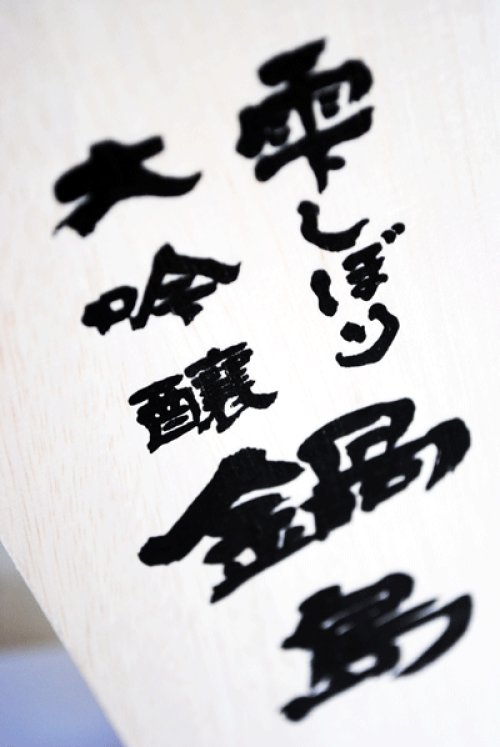 雫しぼり
大吟醸
鍋島